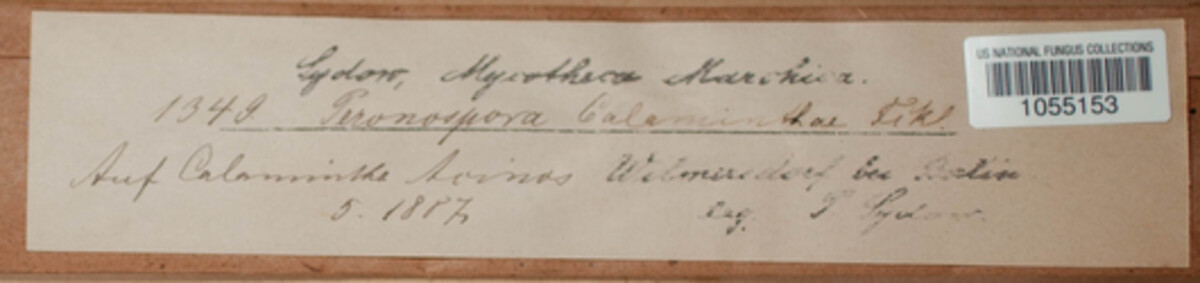 Sydow, Mycotheca Marchica.
US NATIONAL FUNGUS COLLECTIONS
1055153
1349. Peronospora Calaminthae Fckl.
Auf Calamintha Acinos Wilmersdorf bei Berlin
5. 1887, leg. P Sydow.